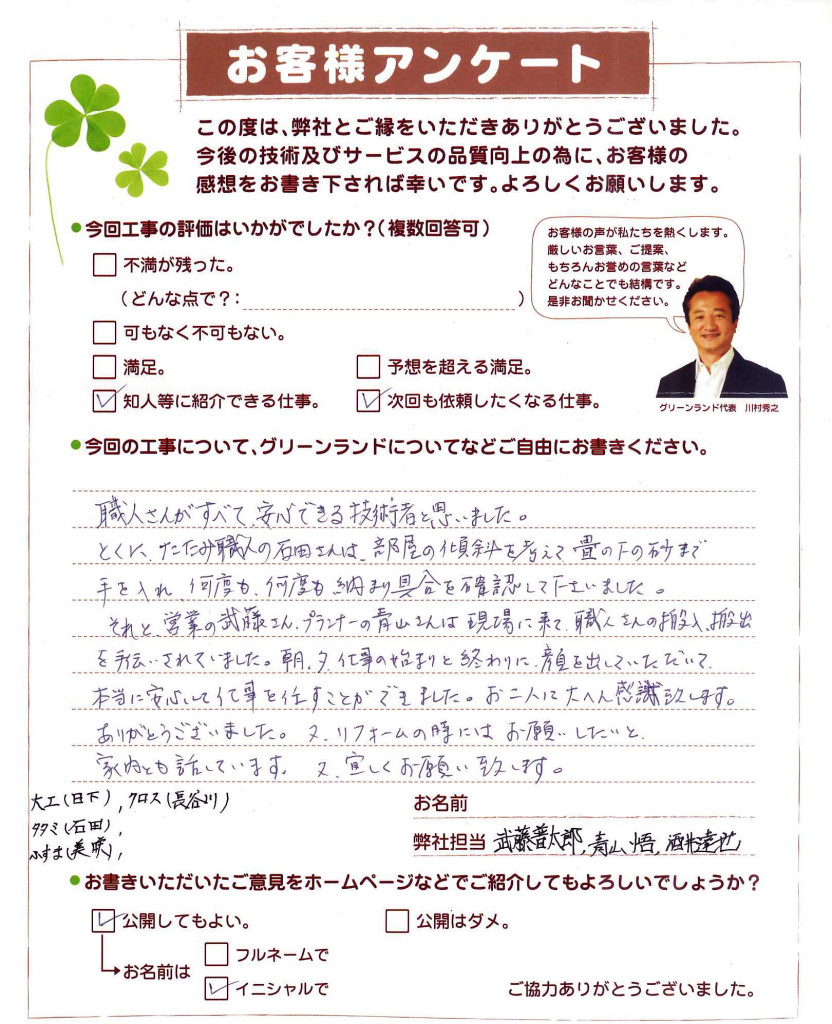 お客様アンケート
この度は、弊社とご縁をいただきありがとうございました。
今後の技術及びサービスの品質向上の為に、お客様の
感想をお書き下されば幸いです。よろしくお願いします。
今回工事の評価はいかがでしたか？（複数回答可）
不満が残った。
（どんな点で？：　）
可もなく不可もない。
満足。
予想を超える満足。
知人等に紹介できる仕事。
次回も依頼したくなる仕事。
お客様の声が私たちを熱くします。
厳しいお言葉、ご提案、
もちろんお誉めの言葉など
どんなことでも結構です。
是非お聞かせください。
グリーンランド代表　川村秀之
今回の工事について、グリーンランドについてなどご自由にお書きください。
職人さんがすべて、安心できる技術者と思いました。
とくに、たたみ職人の石田さんは、部屋の傾斜を考えて畳の下の砂まで
手を入れ、何度も、何度も納まり具合を確認して下さいました。
それと、営業の武藤さん、プランナーの青山さんは現場に来て、職人さんの搬入、搬出
を手伝いされていました。朝、夕、仕事の始まりと終わりに、顔を出していただいて、
本当に安心して仕事を任すことができました。お二人に大へん感謝致します。
ありがとうございました。又、リフォームの時にはお願いしたいと、
家内とも話しています。又、宜しくお願い致します。
大工(日下), クロス(長谷川)
タタミ(石田),
ふすま(美咲),
お名前
弊社担当 武藤晋太郎, 青山 悟, 酒井達
お書きいただいたご意見をホームページなどでご紹介してもよろしいでしょうか？
公開してもよい。
公開はダメ。
お名前は
フルネームで
イニシャルで
ご協力ありがとうございました。